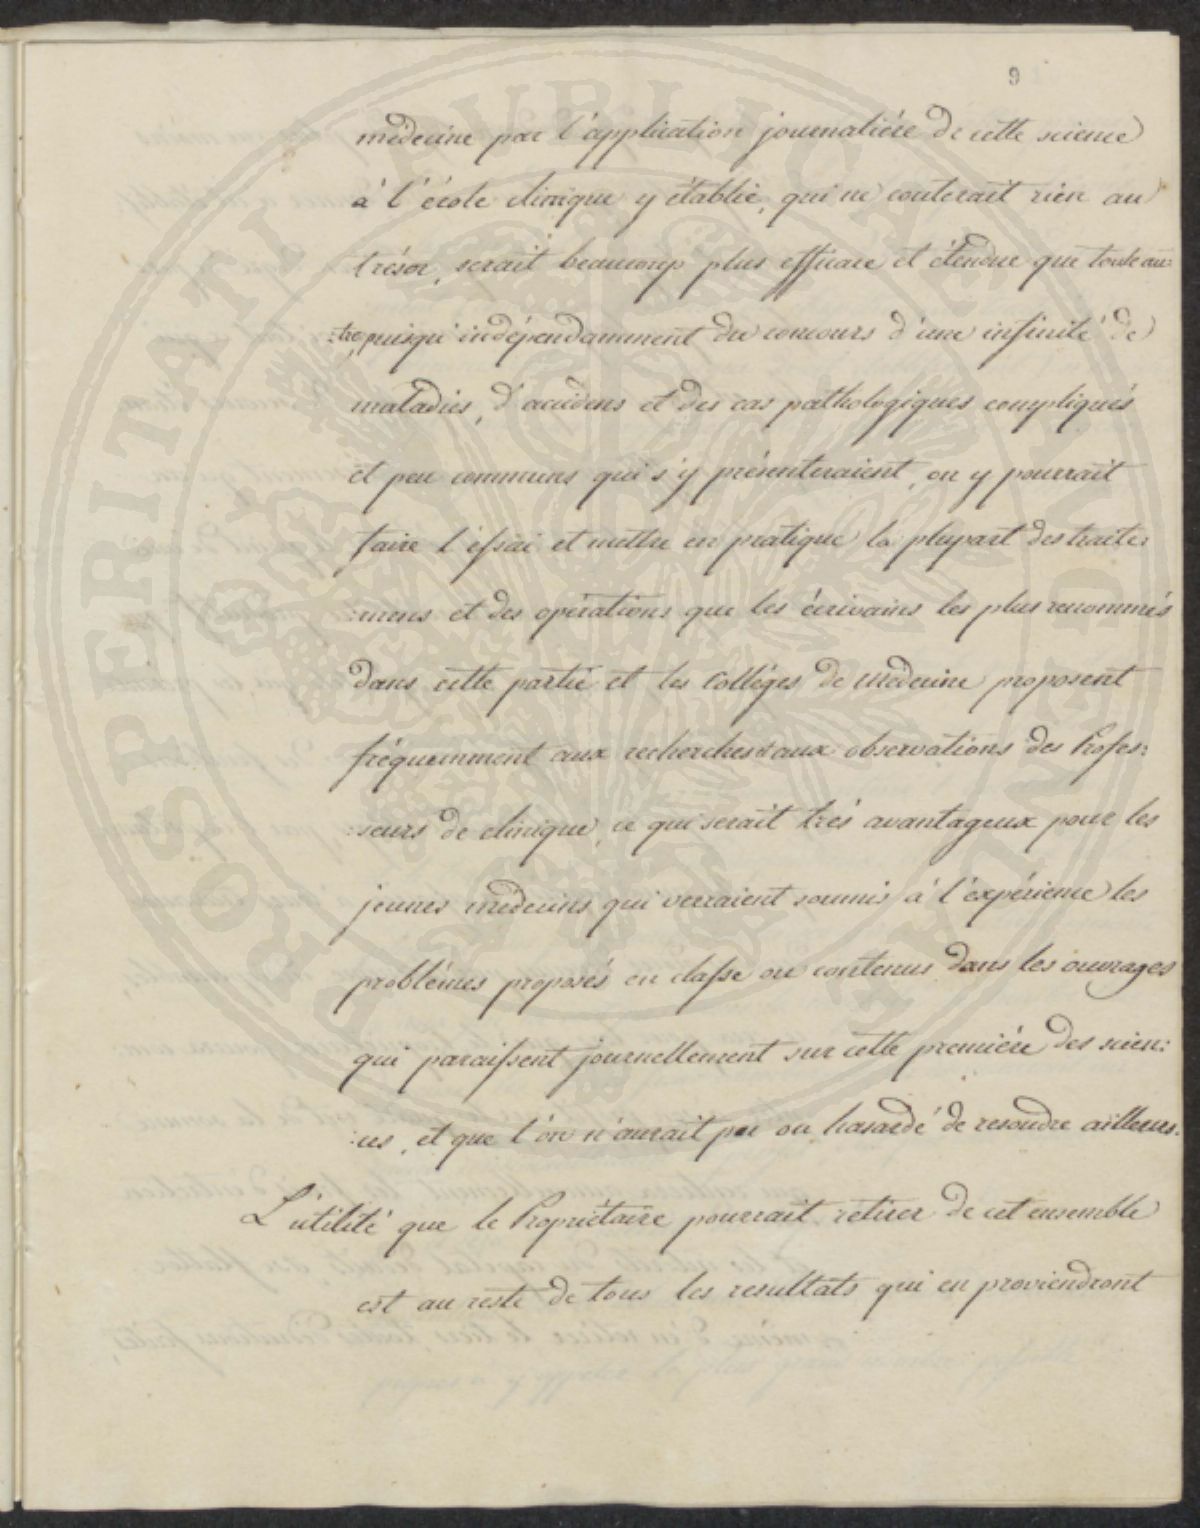 9
médecine par l'application journaliére de cette science
à l'école clinique y établie, qui ne couterait rien au
trésor, serait beaucoup plus efficace et étendue que toute au:
:tre, puisqu'indépendamment du concours d'une infinité de
maladies, d'accidens et des cas pathologiques compliqués
et peu communs qui s'y présenteraient, on y pourrait
faire l'essai et mettre en pratique la plupart des traite:
:mens et des opérations que les écrivains les plus renommés
dans cette partie et les Colléges de médecine proposent
fréquemment aux recherches & aux observations des Profes:
:seurs de clinique, ce qui serait très avantageux pour les
jeunes médecins qui verraient soumis à l'expérience les
problémes proposés en classe ou contenus dans les ouvrages
qui paraissent journellement sur cette premiére des scien:
:ces, et que l'on n'aurait pu ou hasardé de resoudre ailleurs.
L'utilité que le Propriétaire pourrait retirer de cet ensemble
est au reste de tous les resultats qui en proviendront
PROSPERITATI PUBLICAE AUGENDAE